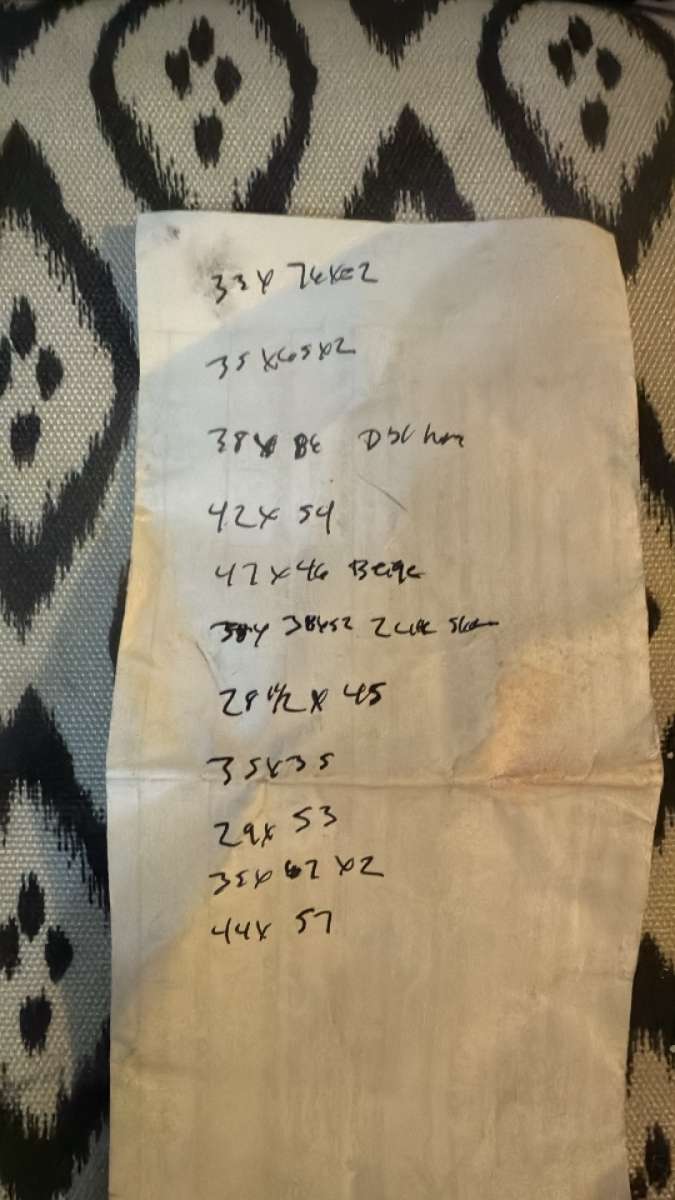 33 x 74 x 2
35 x 65 x 2
38 x 8
42 x 54
47 x 46 Beige
38 x 52
28 1/2 x 45
35 x 35
29 x 53
35 x 62 x 2
44 x 57